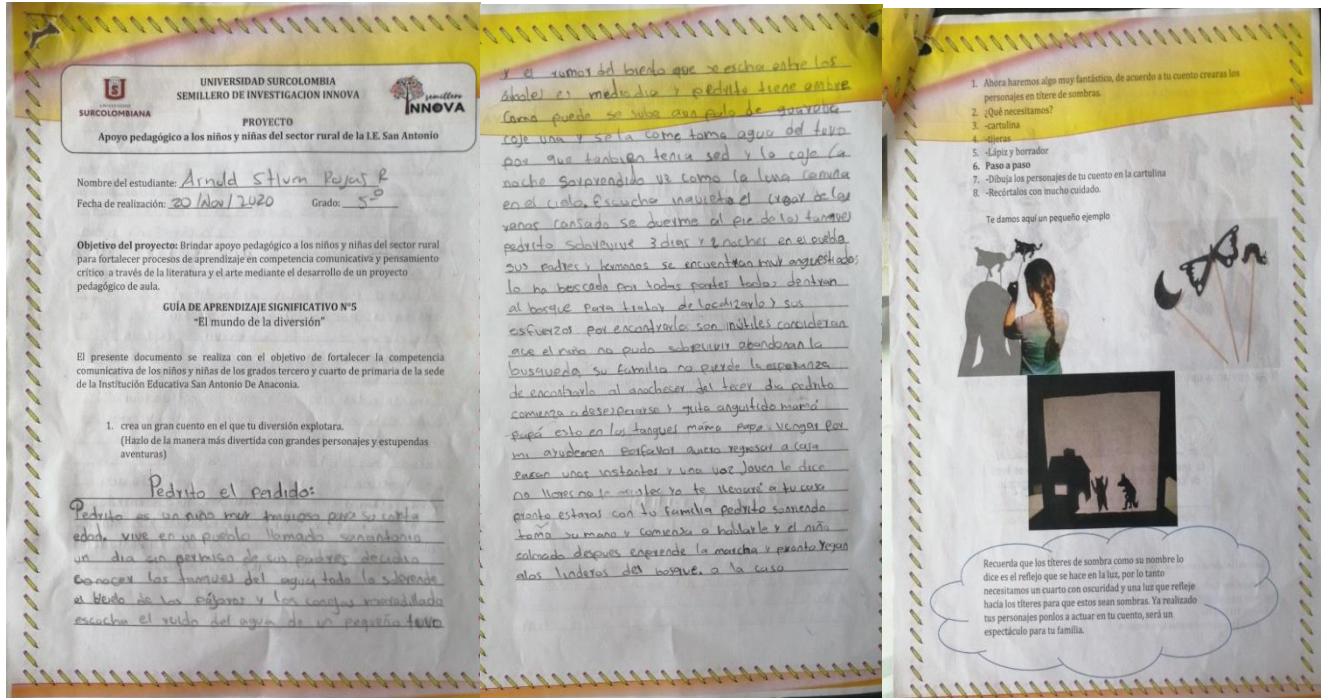 UNIVERSIDAD SURCOLOMBIA
SEMILLERO DE INVESTIGACION INNOVA
UNIVERSIDAD
SURCOLOMBIANA
semillero
INNOVA
PROYECTO
Apoyo pedagógico a los niños y niñas del sector rural de la I.E. San Antonio
Nombre del estudiante: Arnold Stiven Rojas R
Fecha de realización: 20/Nov/2020 Grado: 5-0
Objetivo del proyecto: Brindar apoyo pedagógico a los niños y niñas del sector rural
para fortalecer procesos de aprendizaje en competencia comunicativa y pensamiento
crítico a través de la literatura y el arte mediante el desarrollo de un proyecto
pedagógico de aula.
GUÍA DE APRENDIZAJE SIGNIFICATIVO N°5
"El mundo de la diversión"
El presente documento se realiza con el objetivo de fortalecer la competencia
comunicativa de los niños y niñas de los grados tercero y cuarto de primaria de la sede
de la Institución Educativa San Antonio De Anaconia.
1. crea un gran cuento en el que tu diversión explotara.
(Hazlo de la manera más divertida con grandes personajes y estupendas
aventuras)
Pedrito el perdido:
Pedrito es un niño muy para su corta
edad. vive en un pueblo llamado sanantonio
un dia sin permiso de sus padres decidio
conocer los tanques del agua todo lo
el de los pájaros y los
escucha el ruido del agua de un pequeño tuvo
y el rumor del biento que se escha entre los
arboles es mediodia y pedrito tiene ambre
Como puede se sube aun palo de guayaba
coje una y se la come toma agua del tuvo
por que tanbien tenia sed y lo coje la
noche sorprendido ve como la luna camina
en el cielo. Escucha inquieto el croar de las
ranas cansado se duerme al pie de los tanques
pedrito sobrevive 3 dias y 2 noches en el pueblo
sus padres y hermanos se encuentran muy angustiados
lo ha boscado por todas partes todos dentran
al bosque para tratar de localizarlo y sus
esfuerzos por encontrarlo son inútiles consideran
que el niño no pudo sobrevivir abandonan la
busqueda su familia no pierde la esperanza
de encontrarlo al anocheser del tecer dia pedrito
comienza a desesperarse y grita angustido mamá
papá esto en los tanques mama papa vengar por
mi ayudemen porfavor quiero regresar a casa
pasan unos instantes y una voz le dice
no llores no te ya te llevaré a tu casa
pronto estaras con tu familia pedrito sonriendo
toma su mano y comensa a hablarle y el niño
calmado despues enprende la marcha y pronto
alos linderos del bosque. a la casa
1. Ahora haremos algo muy fantástico, de acuerdo a tu cuento crearas los
personajes en títere de sombras.
2. ¿Qué necesitamos?
3. -cartulina
4. -tijeras
5. -Lápiz y borrador
6. Paso a paso
7. -Dibuja los personajes de tu cuento en la cartulina
8. -Recórtalos con mucho cuidado.
Te damos aquí un pequeño ejemplo
Recuerda que los títeres de sombra como su nombre lo
dice es el reflejo que se hace en la luz, por lo tanto
necesitamos un cuarto con oscuridad y una luz que refleje
hacia los títeres para que estos sean sombras. Ya realizado
tus personajes ponlos a actuar en tu cuento, será un
espectáculo para tu familia.